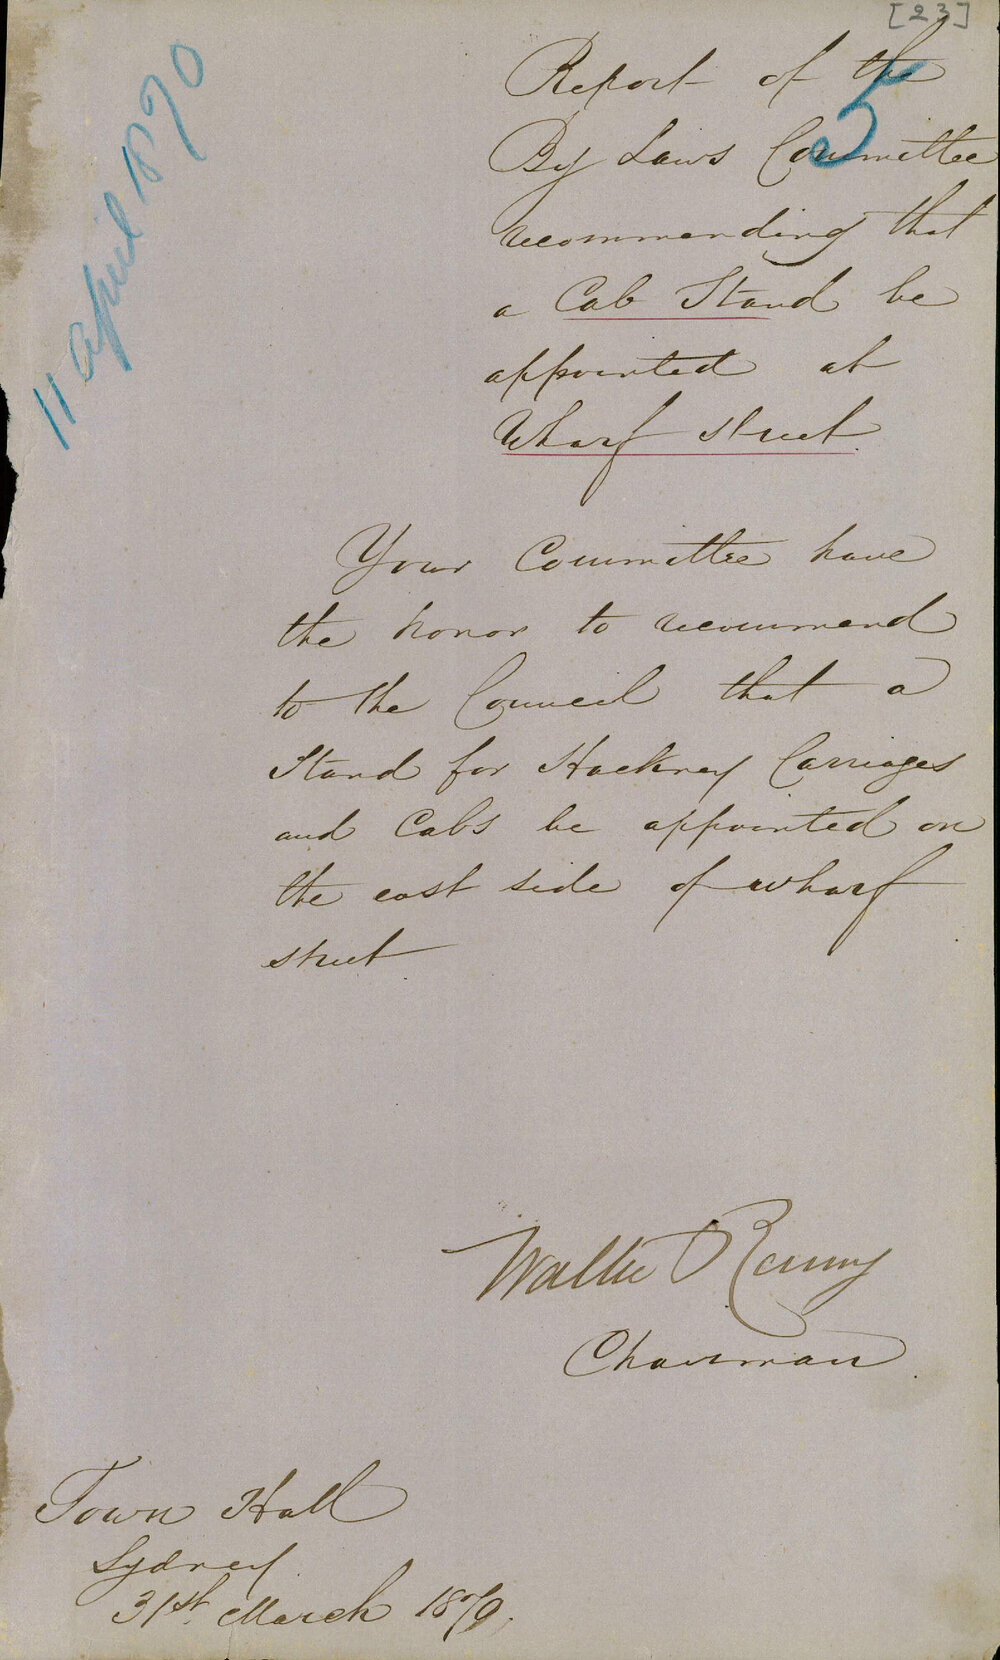 [23]
11 April 1870
5
Report of the
By Laws Committee
recommending that
a Cab Stand be
appointed at
Wharf Street.
Your Committee have
the honor to recommend
to the Council that a
Stand for Hackney Carriages
and Cabs be appointed on
the east side of Wharf
Street
Walter Renny
Chairman
Town Hall
Sydney
31st. March 1870.